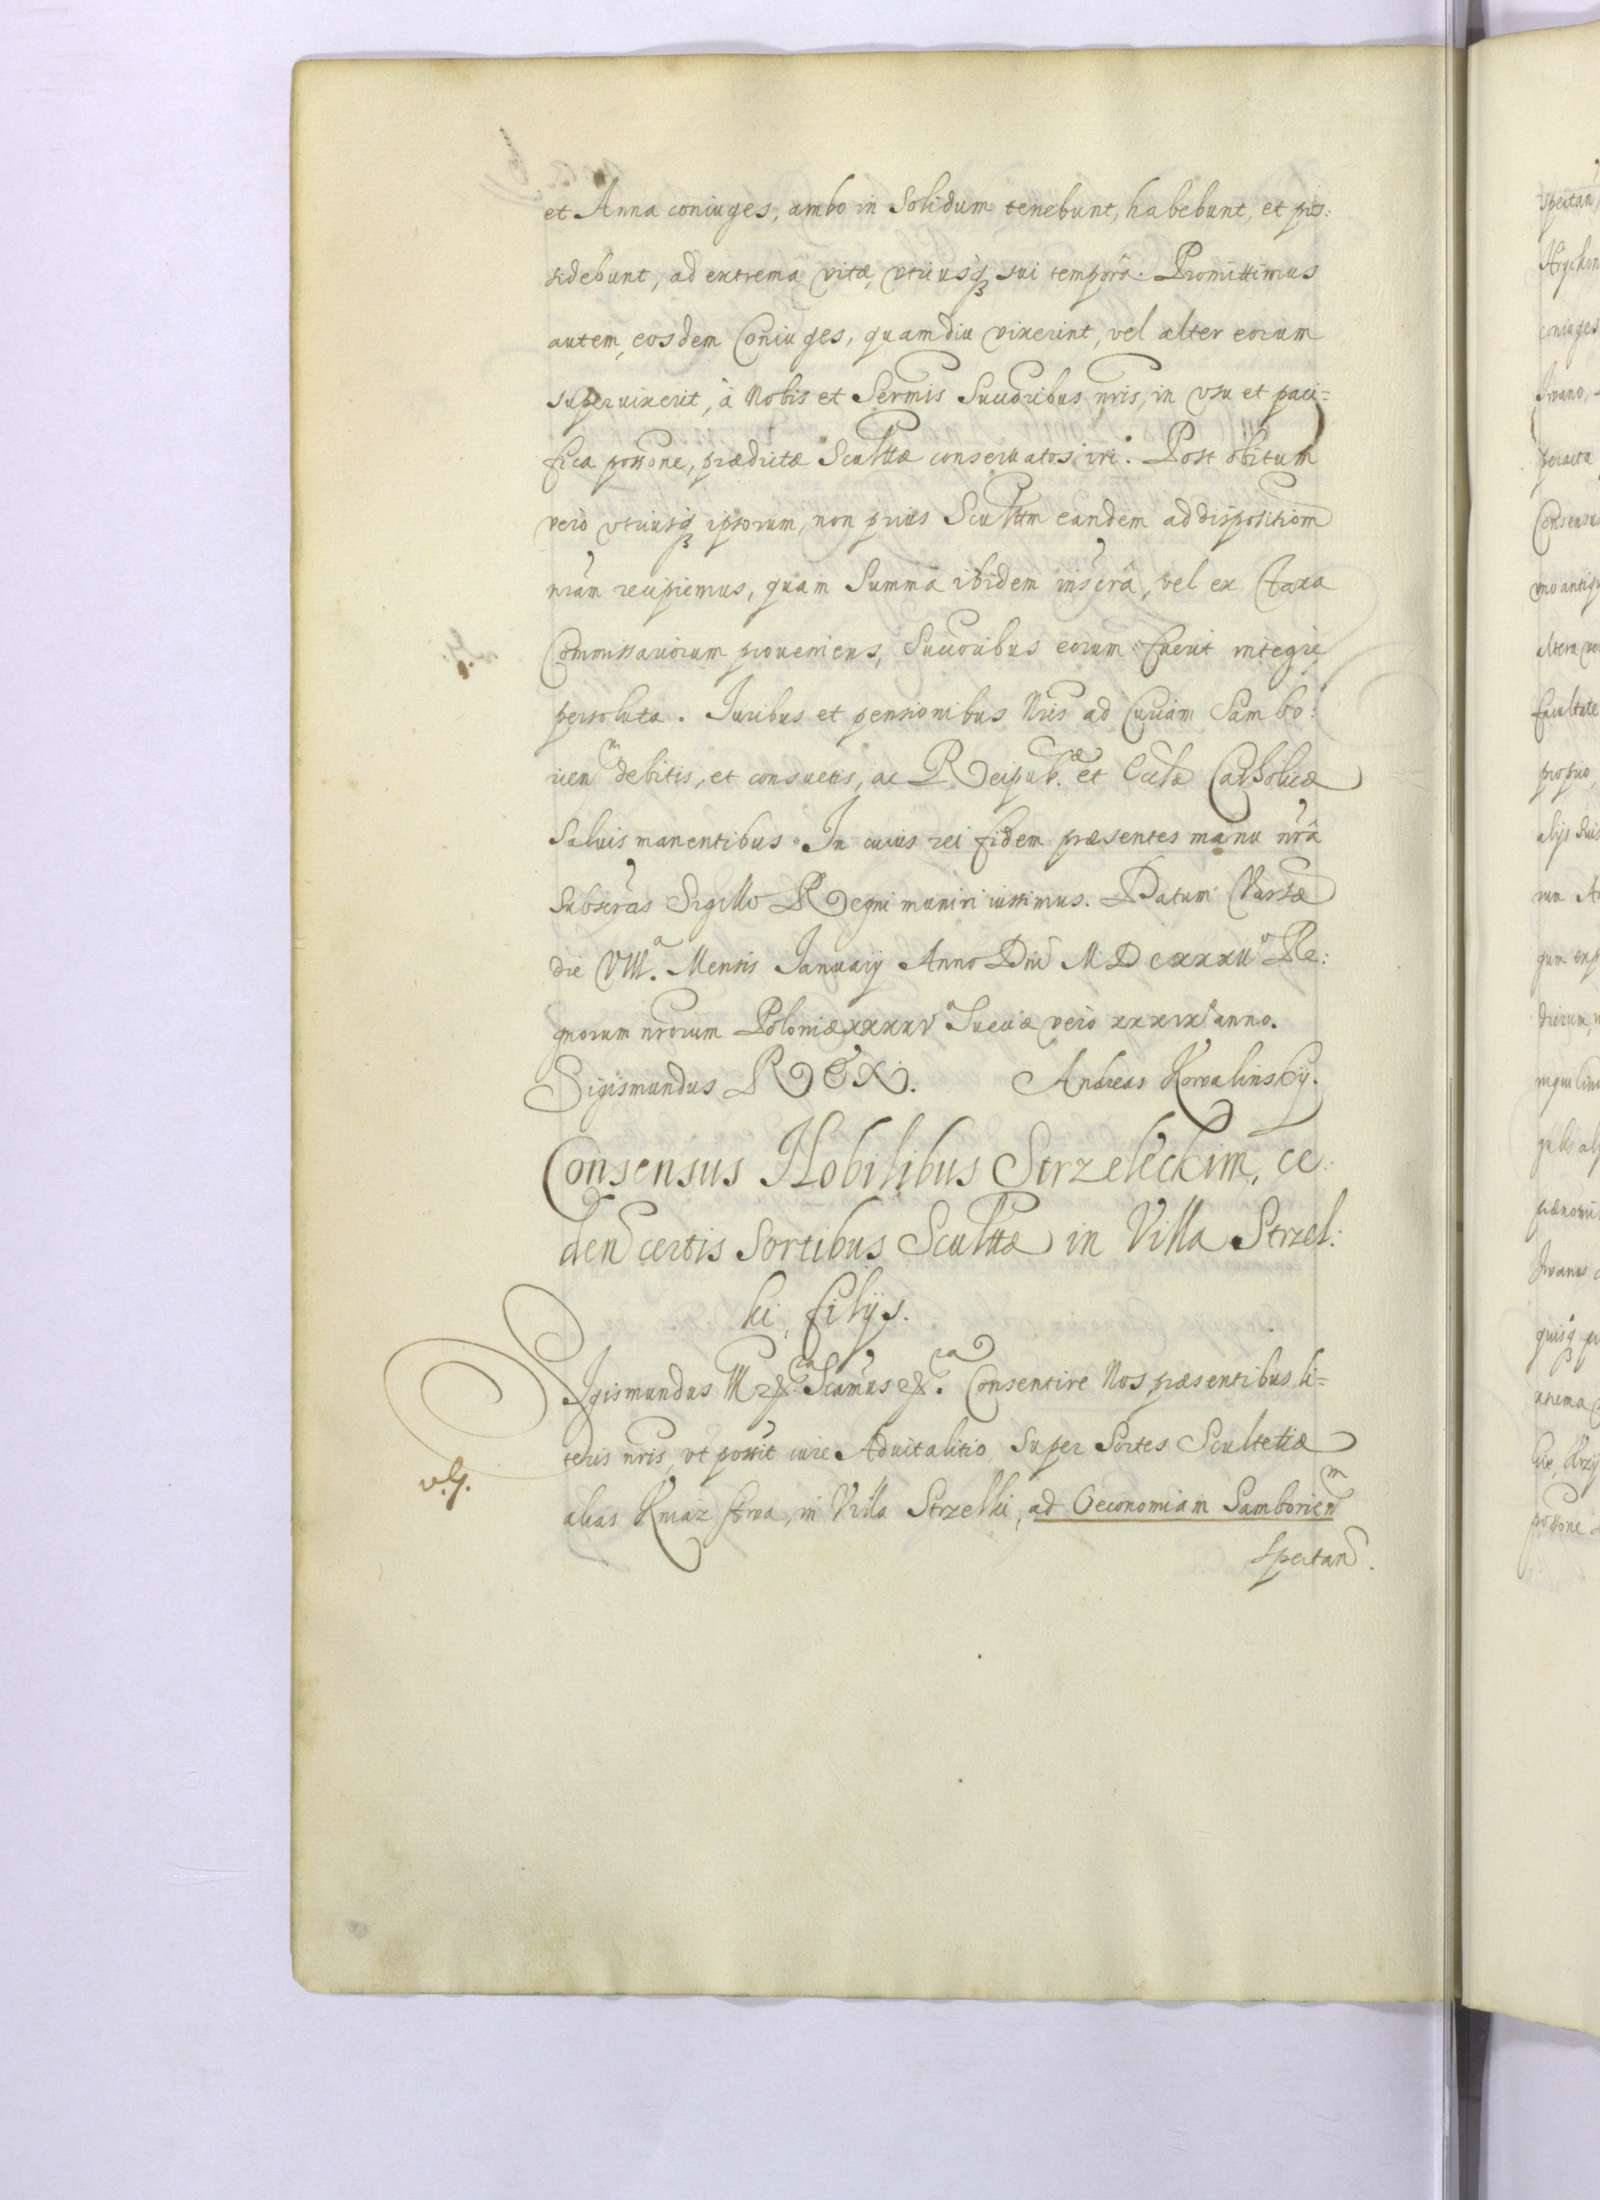 et Anna coniuges, ambo in Solidum tenebunt, habebunt, et pos:
sidebunt, ad extrema vitæ, vtriusq₃ sui tempora. Promittimus
autem, eosdem Coniuges, quamdiu vixerint, vel alter eorum
superuixerit, à Nobis et Sermis Succoribus nris, in vsu et paci=
fica possone, prædictæ Sculttæ conseruatos iri. Post obitum
vero vtriusq₃ ipsorum, non prius Sculttm eandem ad dispositiom
nram recipiemus, quam Summa ibidem inscra, vel ex taxa
Commissariorum proueniens, Succoribus eorum fuerit integre
persoluta. Iuribus et pensionibus Nris ad Curiam Sambo:
rien debitis, et consuetis, ac Reipub. et Eccłæ Catholicæ
Saluis manentibus. In cuius rei fidem præsentes manu nra
Subscras Sigillo Regni muniri iussimus. Datum Varsæ
die VIII.a Mensis Ianuarij Anno Dni M D CXXXIIo Re:
gnorum nrorum Poloniæ xxxxvo Sueciæ vero xxxixo anno.
Sigismundus REX. Andreas Kowalinsky.
Consensus Nobilibus Strzeleckim, ce:
den certis Sortibus Sculttæ in Villa Strzel:
ki, filijs.
Sigismundus III etc. Scamus etc. Consentire Nos præsentibus li=
teris nris, vt possit iure Aduitalitio Super Sortes Scultetiæ
v.g.
alias Kniazstwa, in Villa Strzelki, ad Oeconomiam Samborien
spectan.